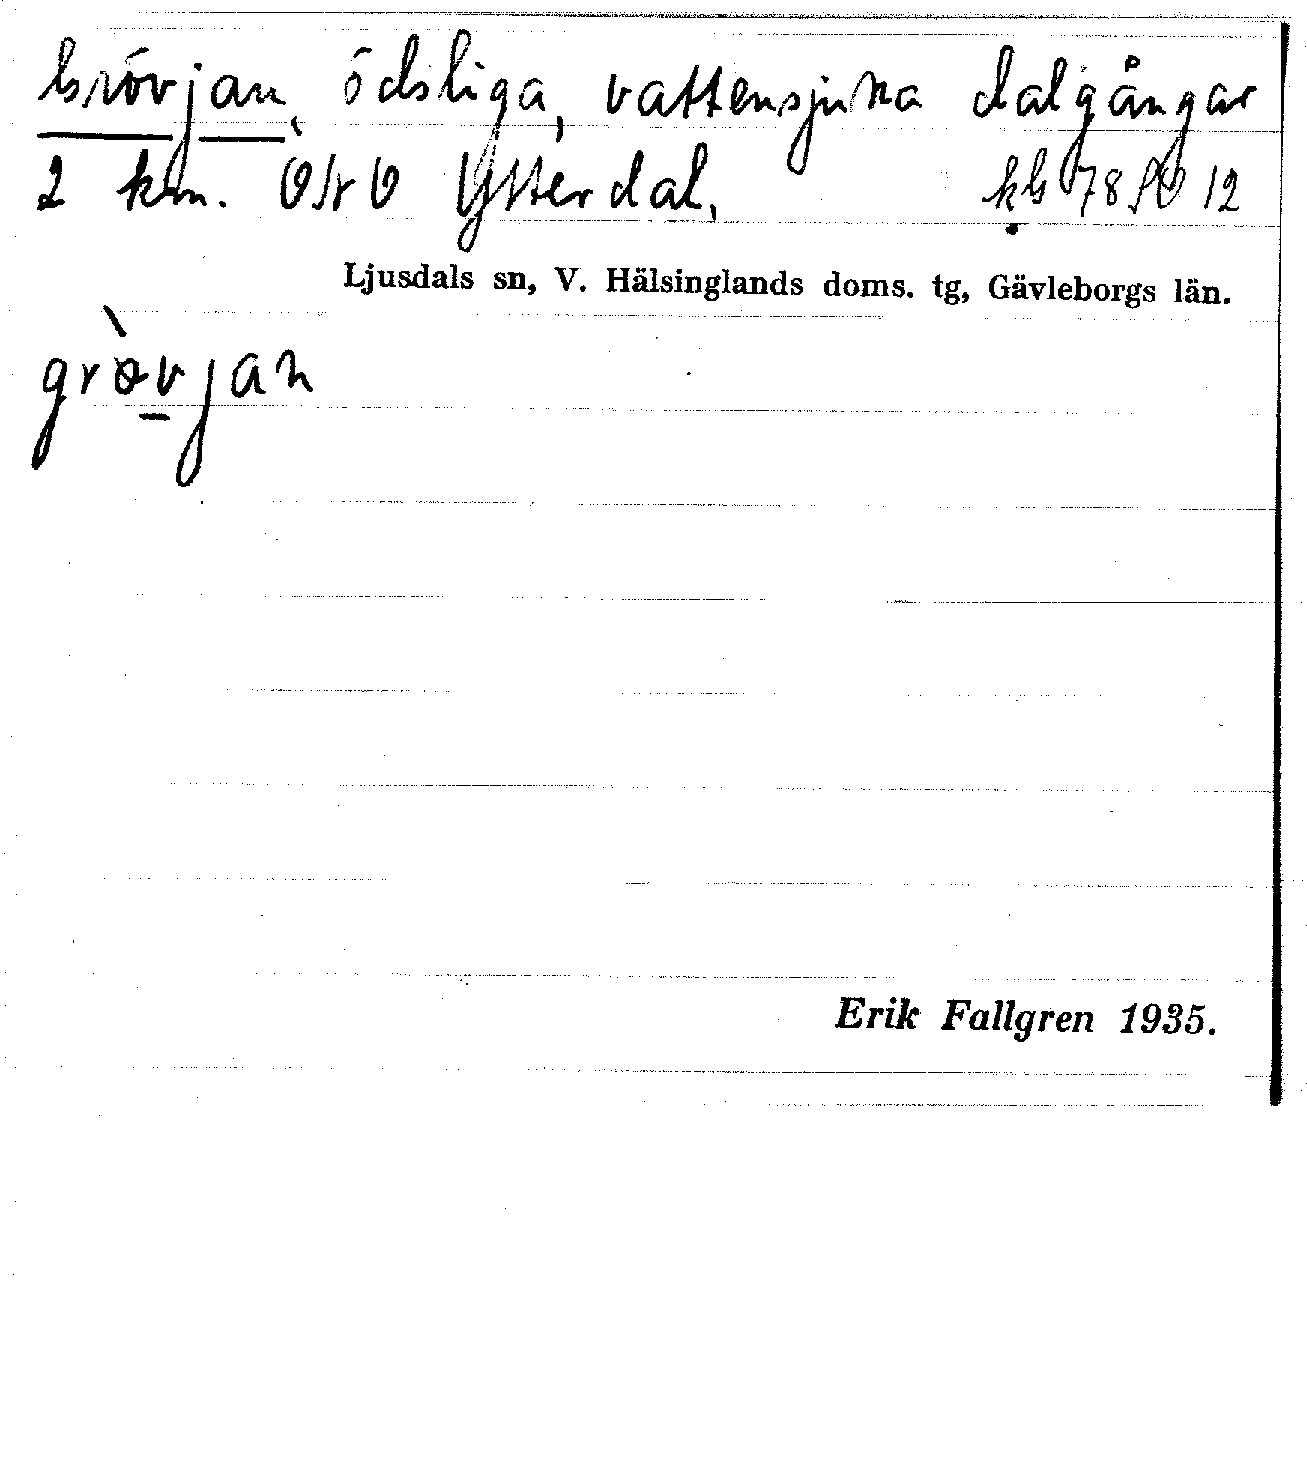 Grövjan, ödsliga, vattensjuka dalgångar
2 km. Ytterdal. kb 78 SO 12
Ljusdals sn, V. Hälsinglands doms. tg, Gävleborgs län.
gròvjan
Erik Fallgren 1935.